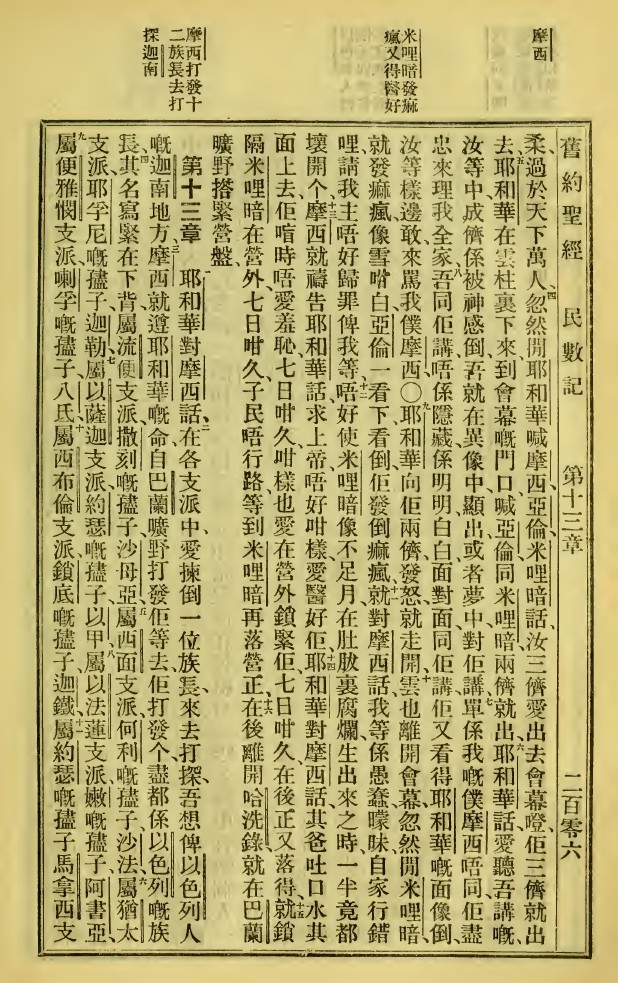 摩西
米哩暗發痲
瘋又得醫好
摩西打發十
二族長去打
探迦南
舊約聖經 民數記 第十三章 二百零六
柔過於天下萬人、四忽然間耶和華喊摩西亞倫米哩暗話、汝三儕愛出去會幕噔、佢三儕就出
去、五耶和華在雲柱裏下來到會幕嘅門口、喊亞倫同米哩暗、兩儕就出、六耶和華話、愛聽吾講嘅、
汝等中成儕係被神感倒、吾就在異像中顯出、或者夢中對佢講、七單係我嘅僕摩西唔同、佢盡
忠來理我全家、八吾同佢講唔係隱藏、係明明白白面對面同佢講、佢又看得耶和華嘅面像倒、
汝等樣邊敢來罵我僕摩西、〇九耶和華向佢兩儕發怒、就走開、十雲也離開會幕、忽然間米哩暗
就發痲瘋像雪咁白、亞倫一看下、看倒佢發倒痲瘋、十一就對摩西話、我等係愚蠢曚昧、自家行錯
哩、請我主唔好歸罪俾我等、十二唔好使米哩暗像不足月、在肚肢裏腐爛生出來之時、一半竟都
壞開个、十三摩西就禱告耶和華話、求上帝唔好咁樣、愛醫好佢、十四耶和華對摩西話、其爸吐口水其
面上去、佢喧時唔愛羞恥七日咁久、咁樣也愛在營外鎖緊佢七日咁久、在後正又落得、十五就鎖
隔米哩暗在營外七日咁久、子民唔行路、等到米哩暗再落營正、十六在後離開哈洗錄、就在巴蘭
曠野搭緊營盤、
第十三章 一耶和華對摩西話、二在各支派中、愛揀倒一位族長來去打探、吾想俾以色列人
嘅迦南地方、三摩西就遵耶和華嘅命、自巴蘭曠野打發佢等去、佢打發个盡都係以色列嘅族
長、四其名寫緊在下背、屬流便支派、撒刻嘅孻子沙母亞、五屬西面支派、何利嘅孻子沙法、六屬猶太
支派、耶孚尼嘅孻子迦勒、七屬以薩迦支派、約瑟嘅孻子以甲、八屬以法蓮支派、嫩嘅孻子阿書亞、
九屬便雅憫支派、喇孚嘅孻子八氐、十屬西布倫支派、鎖底嘅孻子迦鐵、十一屬約瑟嘅孻子馬拿西支